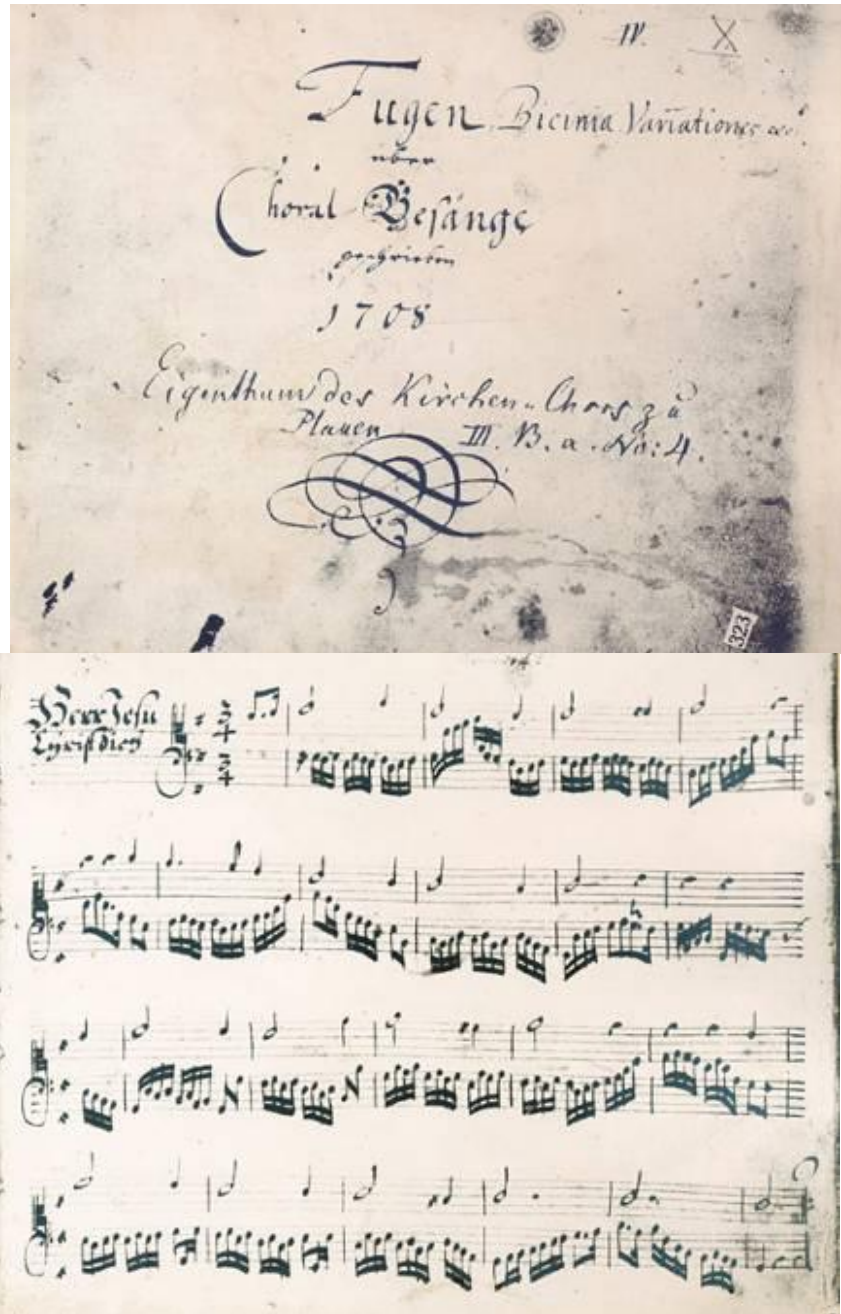 IV. X
Fugen Bicinia Variationes
über
Choral Gesänge
geschrieben
1708
Eigenthum des Kirchen-Chors zu
Plauen III. B. a. No: 4.
323
Herr Jesu
Christ dich
3 4
3 4